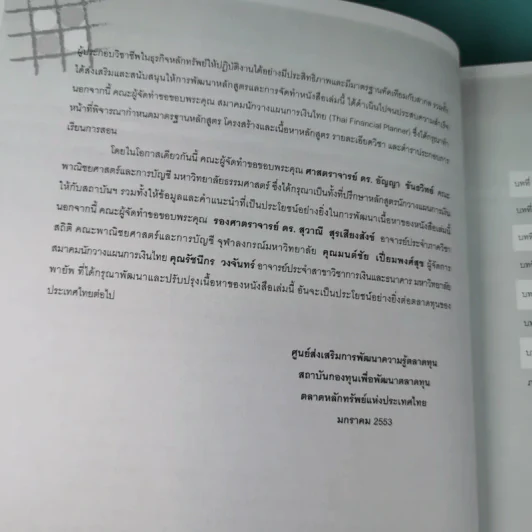 ผู้ประกอบวิชาชีพในธุรกิจหลักทรัพย์ให้ปฏิบัติงานได้อย่างมีประสิทธิภาพและมีมาตรฐานทัดเทียมกับสากล รวมทั้ง
ได้ส่งเสริมและสนับสนุนให้การพัฒนาหลักสูตรและการจัดทำหนังสือเล่มนี้ ได้ดำเนินไปจนประสบความสำเร็จ
นอกจากนี้ คณะผู้จัดทำขอขอบพระคุณ สมาคมนักวางแผนการเงินไทย (Thai Financial Planner) ซึ่งได้กรุณาทำ
หน้าที่พิจารณากำหนดมาตรฐานหลักสูตร โครงสร้างและเนื้อหาหลักสูตร รายละเอียดวิชา และตำราประกอบการ
เรียนการสอน
โดยในโอกาสเดียวกันนี้ คณะผู้จัดทำขอขอบพระคุณ ศาสตราจารย์ ดร. อัญญา ขันธวิทย์ คณะ
พาณิชยศาสตร์และการบัญชี มหาวิทยาลัยธรรมศาสตร์ ซึ่งได้กรุณาเป็นทั้งที่ปรึกษาหลักสูตรนักวางแผนการเงิน
ให้กับสถาบันฯ รวมทั้งให้ข้อมูลและคำแนะนำที่เป็นประโยชน์อย่างยิ่งในการพัฒนาเนื้อหาของหนังสือเล่มนี้
นอกจากนี้ คณะผู้จัดทำขอขอบพระคุณ รองศาสตราจารย์ ดร. สุวาณี สุรเสียงสังข์ อาจารย์ประจำภาควิชา
สถิติ คณะพาณิชยศาสตร์และการบัญชี จุฬาลงกรณ์มหาวิทยาลัย คุณมนต์ชัย เปี่ยมพงศ์สุข ผู้จัดการ
สมาคมนักวางแผนการเงินไทย คุณรัชนีกร วงจันทร์ อาจารย์ประจำสาขาวิชาการเงินและธนาคาร มหาวิทยาลัย
พายัพ ที่ได้กรุณาพัฒนาและปรับปรุงเนื้อหาของหนังสือเล่มนี้ อันจะเป็นประโยชน์อย่างยิ่งต่อตลาดทุนของ
ประเทศไทยต่อไป
ศูนย์ส่งเสริมการพัฒนาความรู้ตลาดทุน
สถาบันกองทุนเพื่อพัฒนาตลาดทุน
ตลาดหลักทรัพย์แห่งประเทศไทย
มกราคม 2553
บทที่
บทที่
บทที่
บทที่